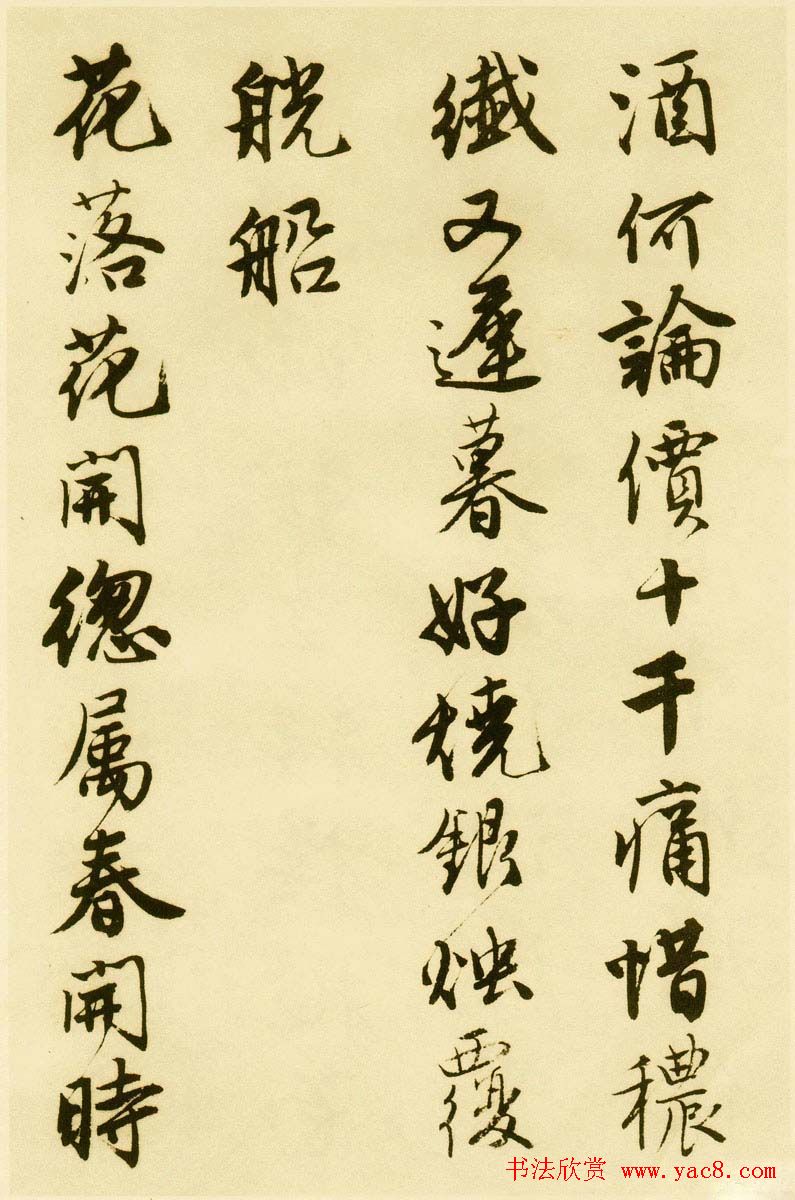 酒何論價十千痛惜穠
纖又遲暮好燒銀烛覆
觥船
花落花開緫属春開時
书法欣赏 www.yac8.com